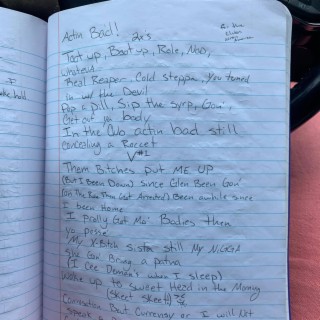 Actin Bad! 2x's
Toot up, Boot up, Role, Nod,
whateva
Real Reaper. Cold steppa, You tuned
in w/ the Devil
Pop a pill, Sip the syrp, Goin',
Get out my body
In the Cub actin bad still
Concealing a Barret
V#1
Them Bitches put ME UP
(But I Been Down) Since Glen Been Gon'
(On The Run Then Got Arrested) Been awhile since
I been Home
I prolly Got Mo' Bodies then
yo phone
My X-Bitch sista still My NiGGA
She Gon' Bring a patna
(I Cee Demen's when I sleep)
Wake up to Sweet Head in the Morning
(skeet skeet)
Conversation But Currency or I will Not
speak